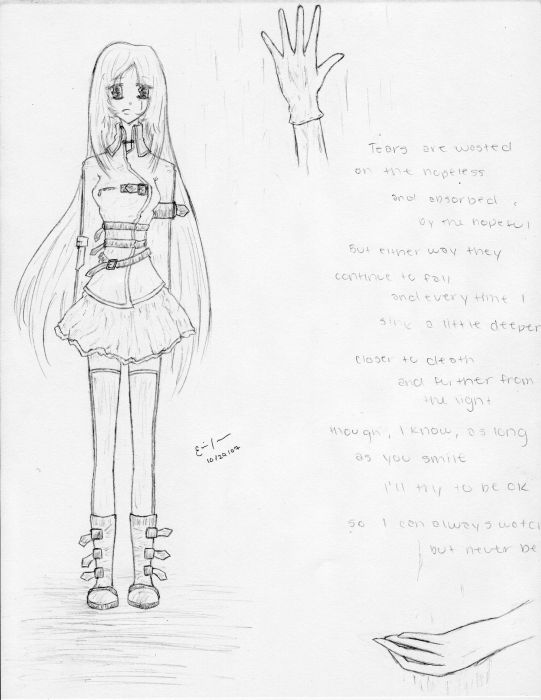 Tears are wasted
on the hopeless
and absorbed
by the hopeful
But either way they
continue to fall
and every time I
sink a little deeper
closer to death
and further from
the light
though, I know, as long
as you smile
I'll try to be ok
so I can always watch
but never be
10/22/07